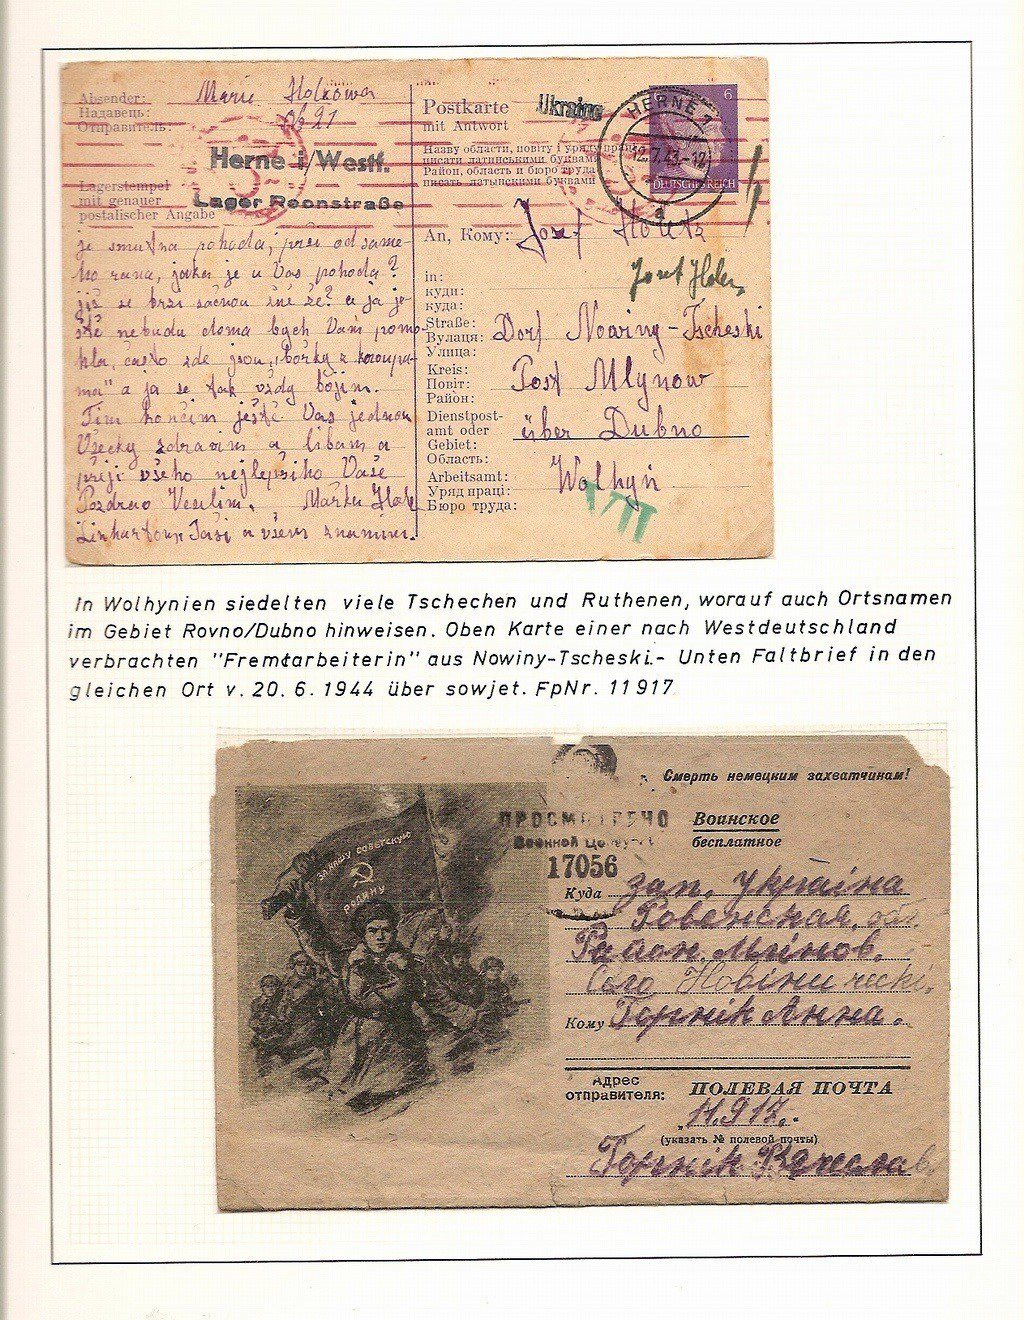 Absender: Marie Holkowa
Надавець: Ob 21
Отправитель:
Herne i/Westf.
Lagerstempel
mit genauer
postalischer Angabe
Lager Roonstraße
je smutna pohoda, prší od same-
ho rana, jaka je u Vas pohoda?
již se brzi začnou žně že? a ja je-
ště nebudu doma bych Vám pomo-
hla, často zde jsou
ma" a ja se tak vždy bojim.
Tim končim ještě Vas jednou
Všecky zdravim a libam a
přeji všeho nejlepšího Vaše
Pozdrav Marka Holk
a všem znamim.
Postkarte
mit Antwort
Ukraine
HERNE 1
12.7.43.-12
a
6
DEUTSCHES REICH
Назву области, повіту і уряду праці
писати латинськими буквами
Район, область и бюро труда
писать латынскими буквами
An, Кому: Josef Holek
Josef Holek
in:
куди:
куда:
Straße: Dorf Nowiny-Tscheski
Вулаця:
Улица:
Kreis: Post Mlynow
Повіт:
Район:
Dienstpost-
amt oder über Dubno
Gebiet:
Область:
Arbeitsamt: Wolhyń
Уряд праці:
Бюро труда:
VII
In Wolhynien siedelten viele Tschechen und Ruthenen, worauf auch Ortsnamen
im Gebiet Rovno/Dubno hinweisen. Oben Karte einer nach Westdeutschland
verbrachten "Fremdarbeiterin" aus Nowiny-Tscheski.- Unten Faltbrief in den
gleichen Ort v. 20. 6. 1944 über sowjet. FpNr. 11917
Смерть немецким захватчинам!
ПРОСМОТРЕНО
Военной Цензурой
17056
Воинское
бесплатное
За нашу советскую
родину
Куда зап. Україна
Ровенская, обл.
Район. Млінов.
Село Новіни ческі.
Кому Горнік Анна.
Адрес
отправителя:
ПОЛЕВАЯ ПОЧТА
11.917.
(указать № полевой почты)
Горнік Вячеслав